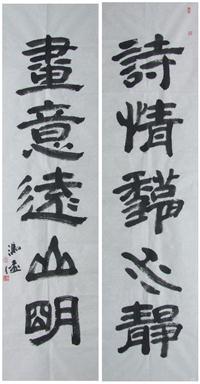 詩情龝水靜
畫意遠山明